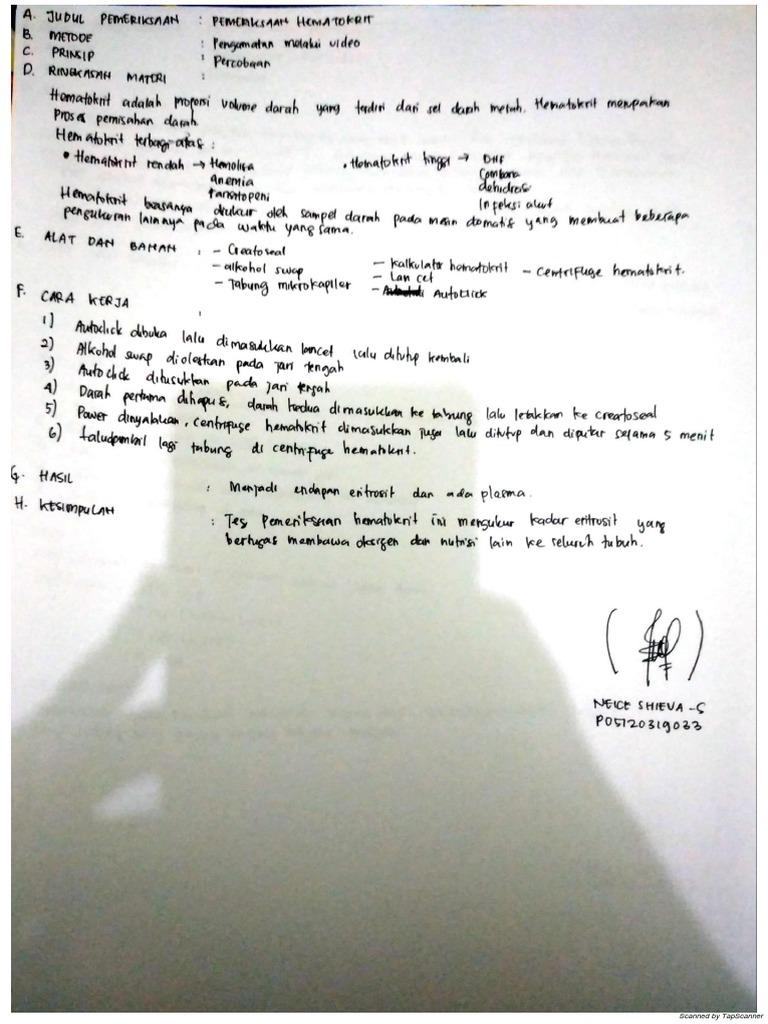 A. JUDUL PEMERIKSAAN : PEMERIKSAAN HEMATOKRIT
B. METODE : Pengamatan melalui video
C. PRINSIP : Percobaan
D. RINGKASAN MATERI :
Hematokrit adalah proporsi volume darah yang terdiri dari sel darah merah. Hematokrit merupakan
Proses pemisahan darah.
Hematokrit terbagi atas :
• Hematokrit rendah → Hemolisa • Hematokrit tinggi → DHF
anemia Combaro
dehidrasi
Infeksi akut
Hematokrit biasanya diukur oleh sampel darah pada mesin otomatis yang membuat beberapa
pengukuran lainnya pada waktu yang sama.
E. ALAT DAN BAHAN : - Creatoseal
- alkohol swap - kalkulator hematokrit - Centrifuge hematokrit.
- Tabung mikrokapiler - Lancet
- Autoclick
F. CARA KERJA :
1) Autoclick dibuka lalu dimasukkan lancet lalu ditutup kembali
2) Alkohol swap dioleskan pada jari tengah
3) Autoclick ditusukkan pada jari tengah
4) Darah pertama dihapus, darah kedua dimasukkan ke tabung lalu letakkan ke creatoseal
5) Power dinyalakan, centrifuge hematokrit dimasukkan juga lalu ditutup dan diputar selama 5 menit
6) lagi tabung di centrifuge hematokrit.
G. HASIL : Menjadi endapan eritrosit dan ada plasma.
H. KESIMPULAN : Tes Pemeriksaan hematokrit ini mengukur kadar eritrosit yang
bertugas membawa oksigen dan nutrisi lain ke seluruh tubuh.
NEICE SHIEVA - S
P05120319033
Scanned by TapScanner